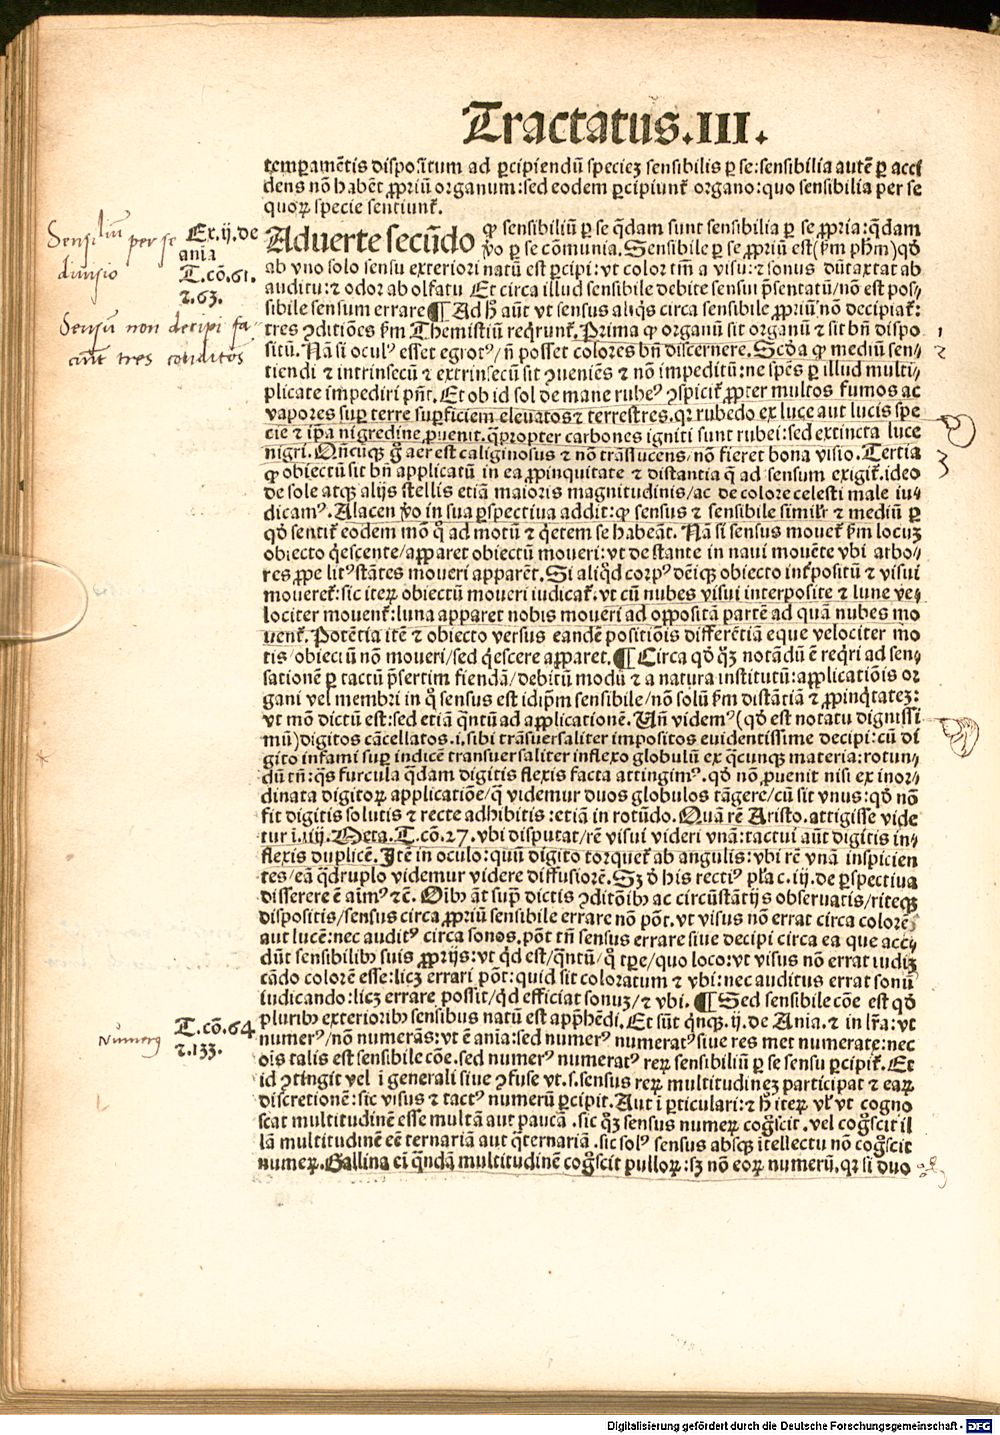 Tractatus.III.
temꝑamētis dispositum ad ꝑcipiendū specieȝ sensibilis ꝑ se:sensibilia autē ꝑ acci
dens nō habēt ꝓpriū organum:sed eodem ꝑcipiunt᷑ organo:quo sensibilia per se
quoꝝ specie sentiunt᷑.
Sensiliū per se
diuisio
Ex.ij.de
ania
T.cō.61.
⁊.63.
Sensū non decipi fa-
ciūt tres conditōs
Aduerte secūdo ꝙ sensibiliū ꝑ se q̄dam sunt sensibilia ꝑ se ꝓpria:q̄dam
v̊o ꝑ se cōmunia. Sensibile ꝑ se ꝓpriū est(ẜm pħm)qđ
ab vno solo sensu exteriori natū est ꝑcipi:vt color tm̄ a visu:⁊ sonus dūtaxtat ab
auditu:⁊ odor ab olfatu Et circa illud sensibile debite sensui p̄sentatū/nō est pos⸗
sibile sensum errare ¶ Ad hͦ aūt vt sensus aliq̇s circa sensibile ꝓpriū nō decipiat᷑:
tres ꝯditiōes ẜm Themistiū req̇runt᷑. Prima ꝙ organū sit organū ⁊ sit bn̄ dispo
1
sitū. Nā si oculꝰ esset egrotꝰ/ n̄ posset colores bn̄ discernere. Scđa ꝙ mediū sen⸗
2
tiendi ⁊ intrinsecū ⁊ extrinsecū sit ꝯueniēs ⁊ nō impeditū:ne spēs ꝑ illud multi⸗
plicate impediri pn̄t. Et ob id sol de mane rubeꝰ ꝯspicit᷑ ꝓpter multos fumos ac
vapores suꝑ terre suꝑficiem eleuatos ⁊ terrestres.qꝛ rubedo ex luce aut lucis spe
cie ⁊ ip̄a nigredine ꝓuenit.q̄propter carbones igniti sunt rubei:sed extincta luce
nigri. Qn̄cūqꝫ gͦ aer est caliginosus ⁊ nō trāslucens/nō fieret bona visio. Tertia
3
ꝙ obiectū sit bn̄ applicatū in ea ꝓpinquitate ⁊ distantia q̄ ad sensum exigit᷑.ideo
de sole atqꝫ alijs stellis etiā maioris magnitudinis/ac de colore celesti male iu⸗
dicamꝰ. Alacen v̊o in sua ꝑspectiua addit:ꝙ sensus ⁊ sensibile simiłr ⁊ mediū ꝑ
qđ sentit᷑ eodem mō q̊ ad motū ⁊ q̇etem se habeāt. Nā si sensus mouet᷑ ẜm locuȝ
obiecto q̇escente/apparet obiectū moueri:vt de stante in naui mouēte vbi arbo⸗
res ꝓpe litꝰ stātes moueri apparēt. Si aliqđ corpꝰ dēiqꝫ obiecto int᷑positū ⁊ visui
moueret᷑:sic iteꝝ obiectū moueri iudicat᷑.vt cū nubes visui interposite ⁊ lune ve⸗
lociter mouent᷑:luna apparet nobis moueri ad oppositā partē ad quā nubes mo
uent᷑. Potētia itē ⁊ obiecto versus eandē positiōis differētiā eque velociter mo
tis/obiectū nō moueri/sed q̇escere apparet. ¶ Circa qđ qꝫ notādū ē req̇ri ad sen⸗
sationē ꝑ tactū p̄sertim fiendā/debitū modū ⁊ a natura institutū:applicatiōis or
gani vel membri in q̊ sensus est idip̄m sensibile/nō solū ẜm distātiā ⁊ ꝓpinq̇tateȝ:
vt mō dictū est:sed etiā q̄ntū ad applicationē. Vn̄ videmꝰ(qđ est notatu digniſſi
mū)digitos cācellatos.i.sibi trāsuersaliter impositos euidentissime decipi:cū di
gito infami suꝑ indicē transuersaliter inflexo globulū ex q̄cunqꝫ materia:rotun⸗
dū tn̄:q̄s furcula q̄dam digitis flexis facta attingimꝰ.qđ nō ꝓuenit nisi ex inor⸗
dinata digitoꝝ applicatiōe/q̄ videmur duos globulos tāgere/cū sit vnus:qđ nō
fit digitis solutis ⁊ recte adhibitis:etiā in rotūdo. Quā rē Aristo.attigisse vide
tur ī.iiij. Meta.T.cō.27.vbi disputat/rē visui videri vnā:tactui aūt digitis in⸗
flexis duplicē. Itē in oculo:quū digito torquet᷑ ab angulis:vbi rē vnā inspicien
tes/eā q̄druplo videmur videre diffusiorē. Sȝ đ his rectiꝰ pła c.iij.de ꝑspectiua
disserere ē aīmꝰ ⁊c̄. Oibꝫ āt sup̄ dictis ꝯditōibꝫ ac circūstātijs obseruatis/riteqꝫ
dispositis/sensus circa ꝓpriū sensibile errare nō pōt.vt visus nō errat circa colorē
aut lucē:nec auditꝰ circa sonos.pōt tn̄ sensus errare siue decipi circa ea que acci⸗
dūt sensibilibꝫ suis ꝓprijs:vt qđ est/q̄ntū/q̄ tꝑe/quo loco:vt visus nō errat iudi⸗
cādo colorē esse:licȝ errari pōt:quid sit coloratum ⁊ vbi:nec auditus errat sonū
iudicando:licȝ errare possit/qđ efficiat sonuȝ/⁊ vbi. ¶ Sed sensibile cōe est qđ
Numerꝰ
T.cō.64
⁊.133.
pluribꝫ exterioribꝫ sensibus natū est app̄hēdi. Et sūt q̇nqꝫ.ij.de Ania.⁊ in lr̄a:vt
numerꝰ/nō numerās:vt ē ania:sed numerꝰ numeratꝰ siue res met numerate:nec
oīs talis est sensibile cōe.sed numerꝰ numeratꝰ reꝝ sensibiliū ꝑ se sensu ꝑcipit᷑. Et
id ꝯtingit vel ī generali siue ꝯfuse vt.s.sensus reꝝ multitudineȝ participat ⁊ eaꝝ
discretionē:sic visus ⁊ tactꝰ numerū ꝑcipit. Aut ī ꝑticulari:⁊ hͦ iteꝝ vł vt cogno
scat multitudinē esse multā aut paucā.sic qꝫ sensus numeꝝ cogͦscit.vel cogͦscit il
lā multitudinē eē ternariā aut q̄ternariā.sic solꝰ sensus absqꝫ ītellectu nō cogͦscit
numeꝝ. Gallina eī q̄ndā multitudinē cogͦscit pulloꝝ:sȝ nō eoꝝ numerū,qꝛ si duo
Digitalisierung gefördert durch die Deutsche Forschungsgemeinschaft - DFG